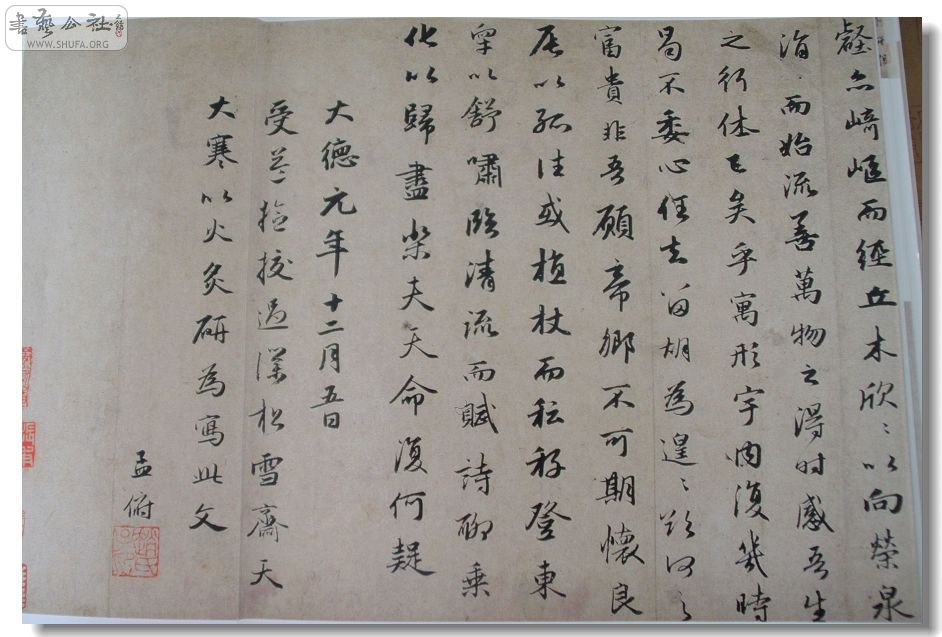 壑亦崎嶇而經丘木欣〻以向榮泉
涓〻而始流善萬物之得時感吾生
之行休已矣乎寓形宇内復幾時
曷不委心任去留胡為遑〻欲何之
富貴非吾願帝鄉不可期懷良
辰以孤往或植杖而耘耔登東
皋以舒嘯臨清流而賦詩聊乘
化以歸盡樂夫天命復何疑
大德元年十二月五日
受益檢校過僕松雪齋天
大寒以火炙研為寫此文
孟俯
趙氏子昂
書藝公社
WWW.SHUFA.ORG